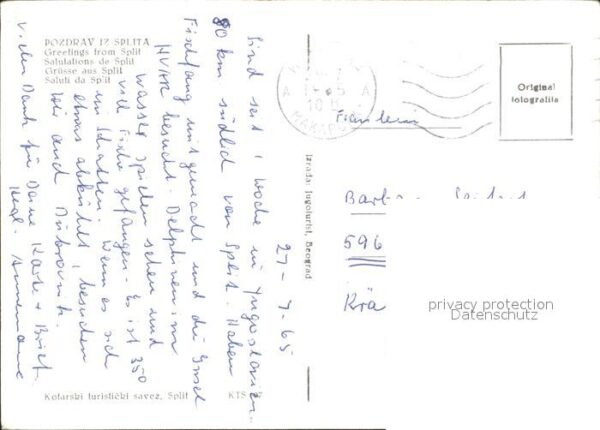 POZDRAV IZ SPLITA
Greetings from Split
Salutations de Split
Grüsse aus Split
Saluti da Split
27-7.65
Sind seit 1 Woche in Jugoslavien.
80 km südlich von Split. Haben
Fischfang mitgemacht und die Insel
HVAR besucht. Delphinen im
Wasser spielen sehen und
viel Fische gefangen. Es ist 35°
im Schatten. Wenn es sich
etwas abkühlt, besuchen
wir auch Dubrovnik.
Vielen Dank für Deine Karte + Brief.
Herzl. Annemarie
Kotarski turistički savez, Split
KTS
Izrađa: Jugoturist, Beograd
MAKARSKA
Original
fotografija
Fräulein
Barb
596
Krä
privacy protection
Datenschutz